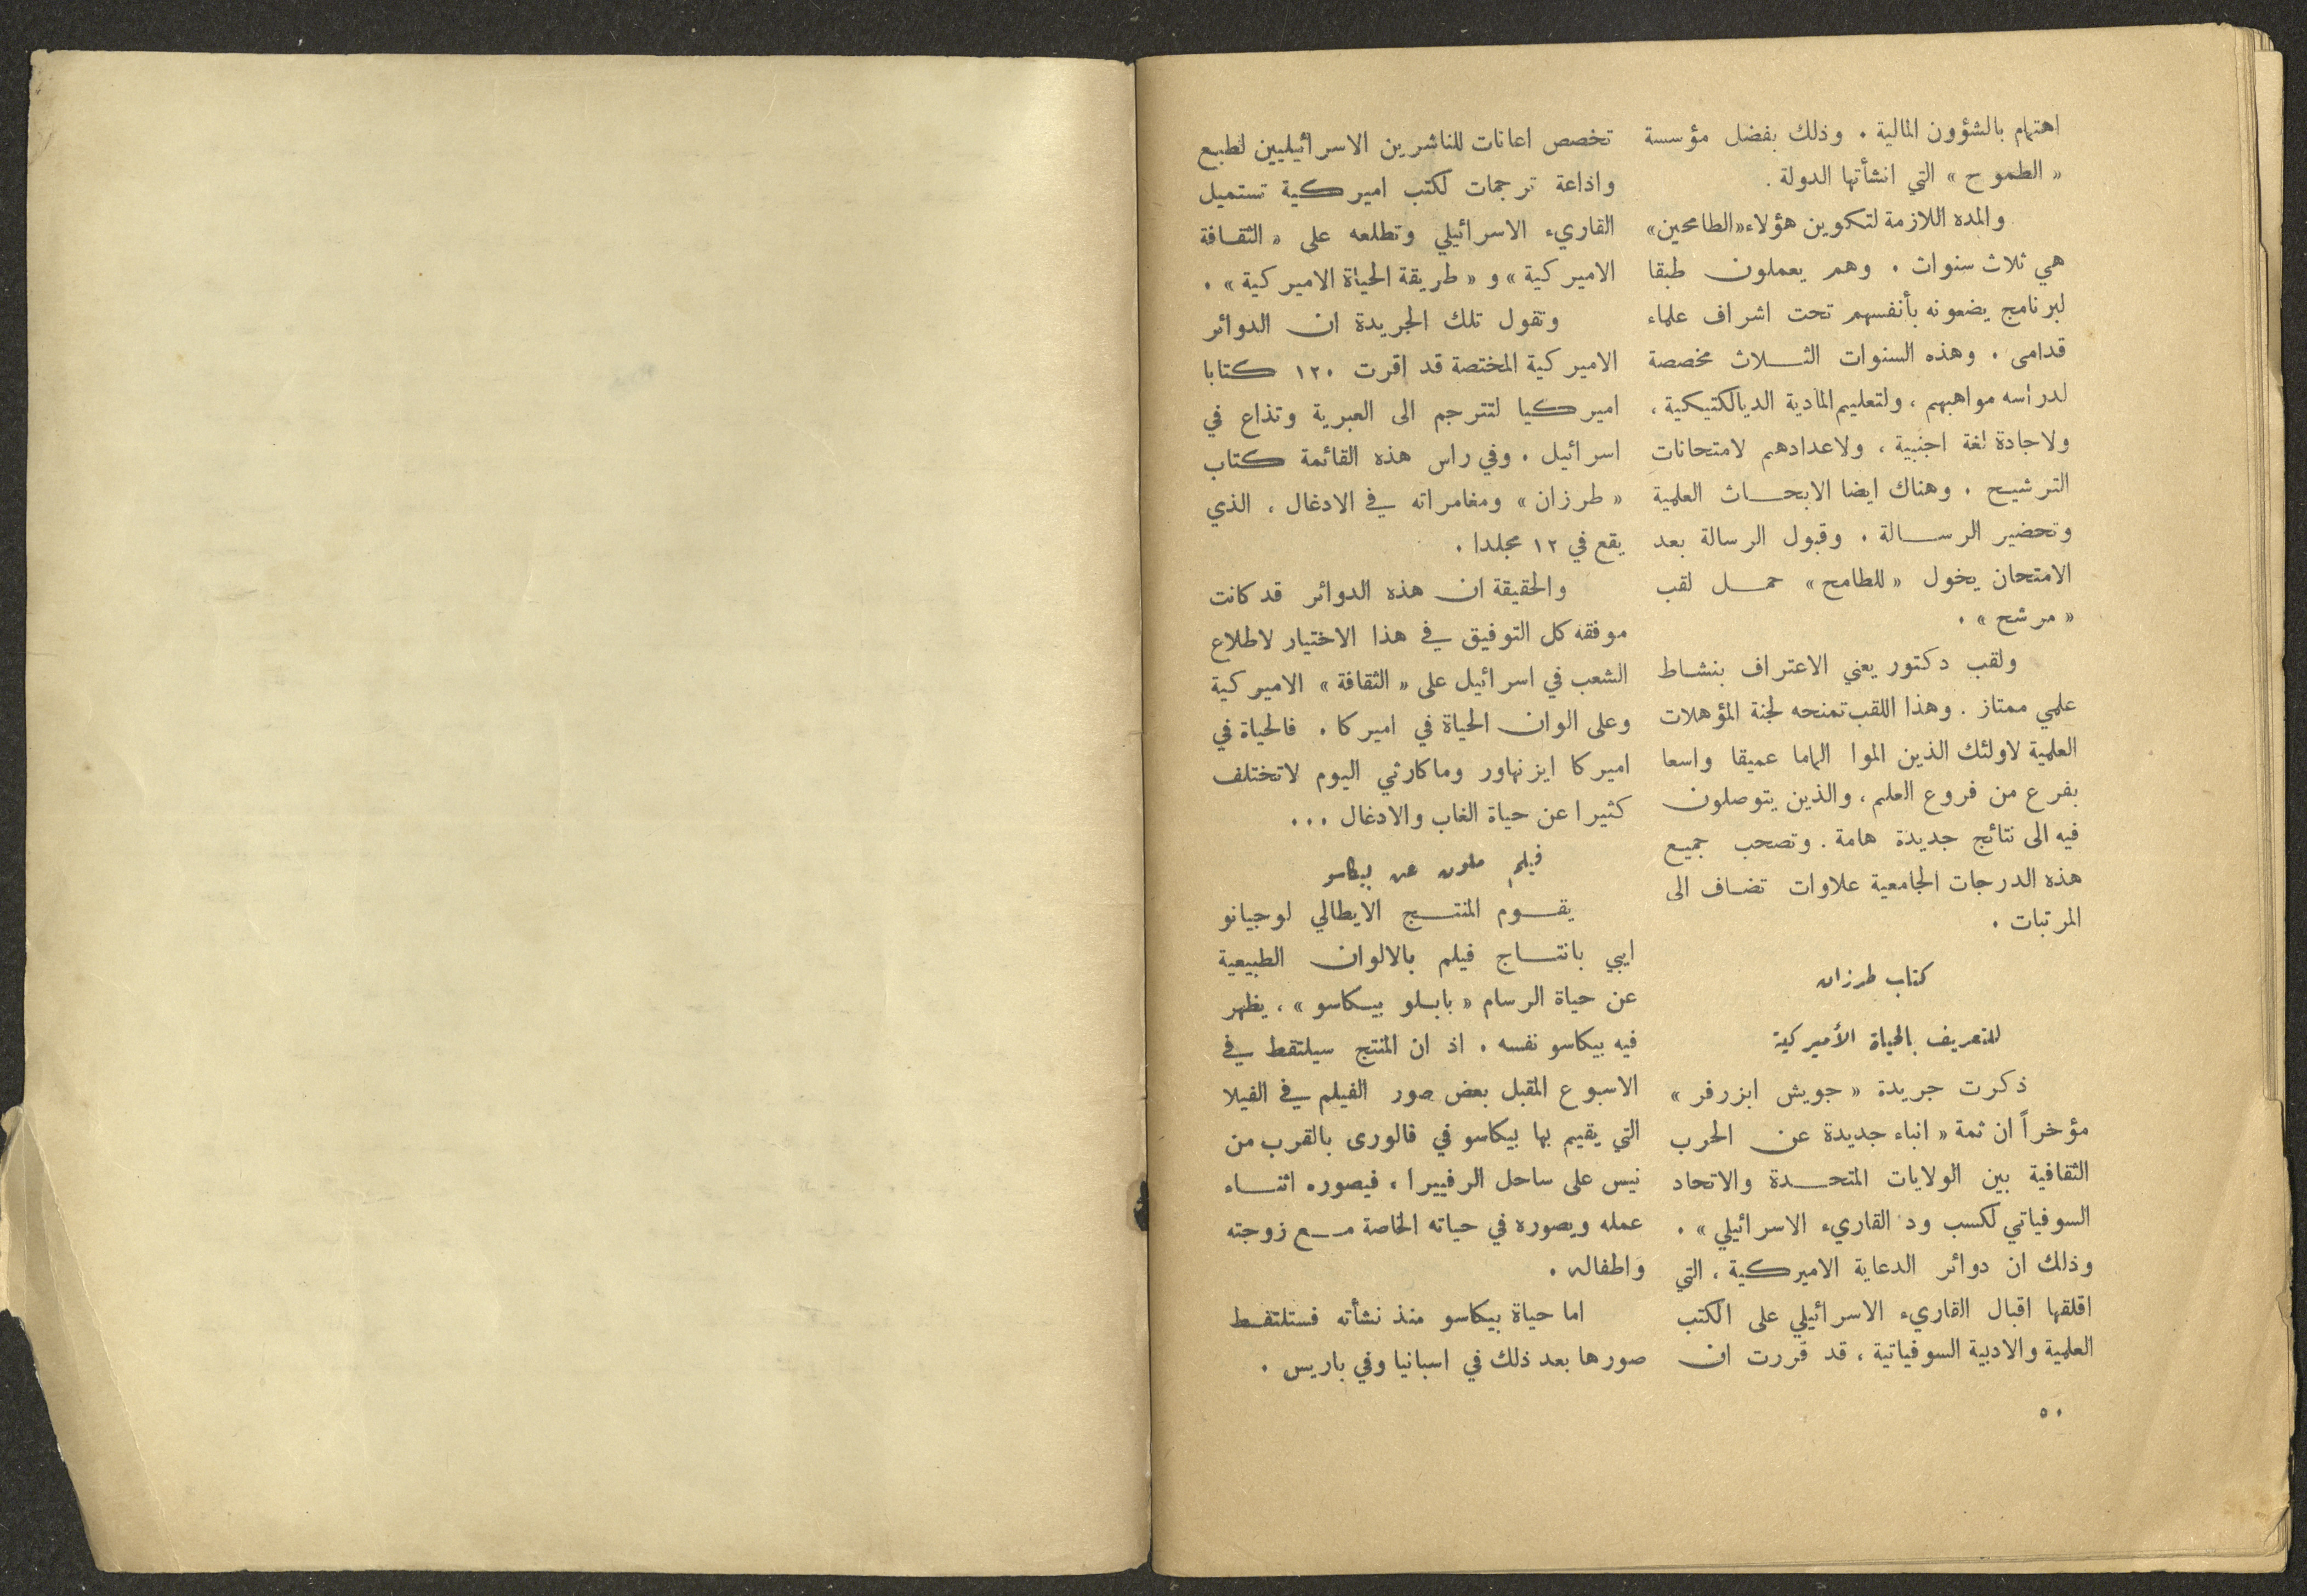 اهتمام بالشؤون المالية . وذلك بفضل مؤسسة
« الطموح » التي انشأتها الدولة .
والمده اللازمة لتكوين هؤلاء «الطامحين»
هي ثلاث سنوات . وهم يعملون طبقا
لبرنامج يضعونه بأنفسهم تحت اشراف علماء
قدامى . وهذه السنوات الثلاث مخصصة
لدراسه مواهبهم ، ولتعليم المادية الديالكتيكية ،
ولاجادة لغة اجنبية ، ولاعدادهم لامتحانات
الترشيح . وهناك ايضا الابحاث العلمية
وتحضير الرسالة . وقبول الرسالة بعد
الامتحان يخول « للطامح » حمل لقب
« مرشح » .
ولقب دكتور يعني الاعتراف بنشاط
علمي ممتاز . وهذا اللقب تمنحه لجنة المؤهلات
العلمية لاولئك الذين الموا الماما عميقا واسعا
بفرع من فروع العلم ، والذين يتوصلون
فيه الى نتائج جديدة هامة . وتصحب جميع
هذه الدرجات الجامعية علاوات تضاف الى
المرتبات .
كتاب طرزان
للتعريف بالحياة الأميركية
ذكرت جريدة « جويش ابزرفر »
مؤخراً ان ثمة « انباء جديدة عن الحرب
الثقافية بين الولايات المتحدة والاتحاد
السوفياتي لكسب ود القاريء الاسرائيلي » .
وذلك ان دوائر الدعاية الاميركية ، التي
اقلقها اقبال القاريء الاسرائيلي على الكتب
العلمية والادبية السوفياتية ، قد قررت ان
تخصص اعانات للناشرين الاسرائيليين لطبع
واذاعة ترجمات لكتب اميركية تستميل
القاريء الاسرائيلي وتطلعه على « الثقافة
الاميركية » و « طريقة الحياة الاميركية » .
وتقول تلك الجريدة ان الدوائر
الاميركية المختصة قد اقرت ١٢٠ كتابا
اميركيا لتترجم الى العبرية وتذاع في
اسرائيل . وفي راس هذه القائمة كتاب
« طرزان » ومغامراته في الادغال ، الذي
يقع في ١٢ مجلدا .
والحقيقة ان هذه الدوائر قد كانت
موفقه كل التوفيق في هذا الاختيار لاطلاع
الشعب في اسرائيل على « الثقافة » الاميركية
وعلى الوان الحياة في اميركا . فالحياة في
اميركا ايزنهاور وماكارثي اليوم لاتختلف
كثيرا عن حياة الغاب والادغال ...
فيلم ملون عن بيكاسو
يقوم المنتج الايطالي لوجيانو
ايبي بانتاج فيلم بالالوان الطبيعية
عن حياة الرسام « بابلو بيكاسو » ، يظهر
فيه بيكاسو نفسه . اذ ان المنتج سيلتقط في
الاسبوع المقبل بعض صور الفيلم في الفيلا
التي يقيم بها بيكاسو في فالورى بالقرب من
نيس على ساحل الرفييرا ، فيصوره اثناء
عمله ويصوره في حياته الخاصة مع زوجته
واطفاله .
اما حياة بيكاسو منذ نشأته فستلتقط
صورها بعد ذلك في اسبانيا وفي باريس .
٥٠